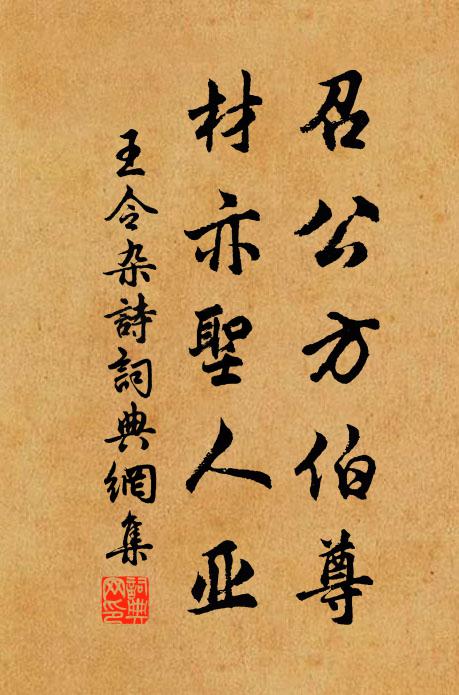 召公方伯尊
材亦聖人亚
王令杂詩詞典網集
詞典网印